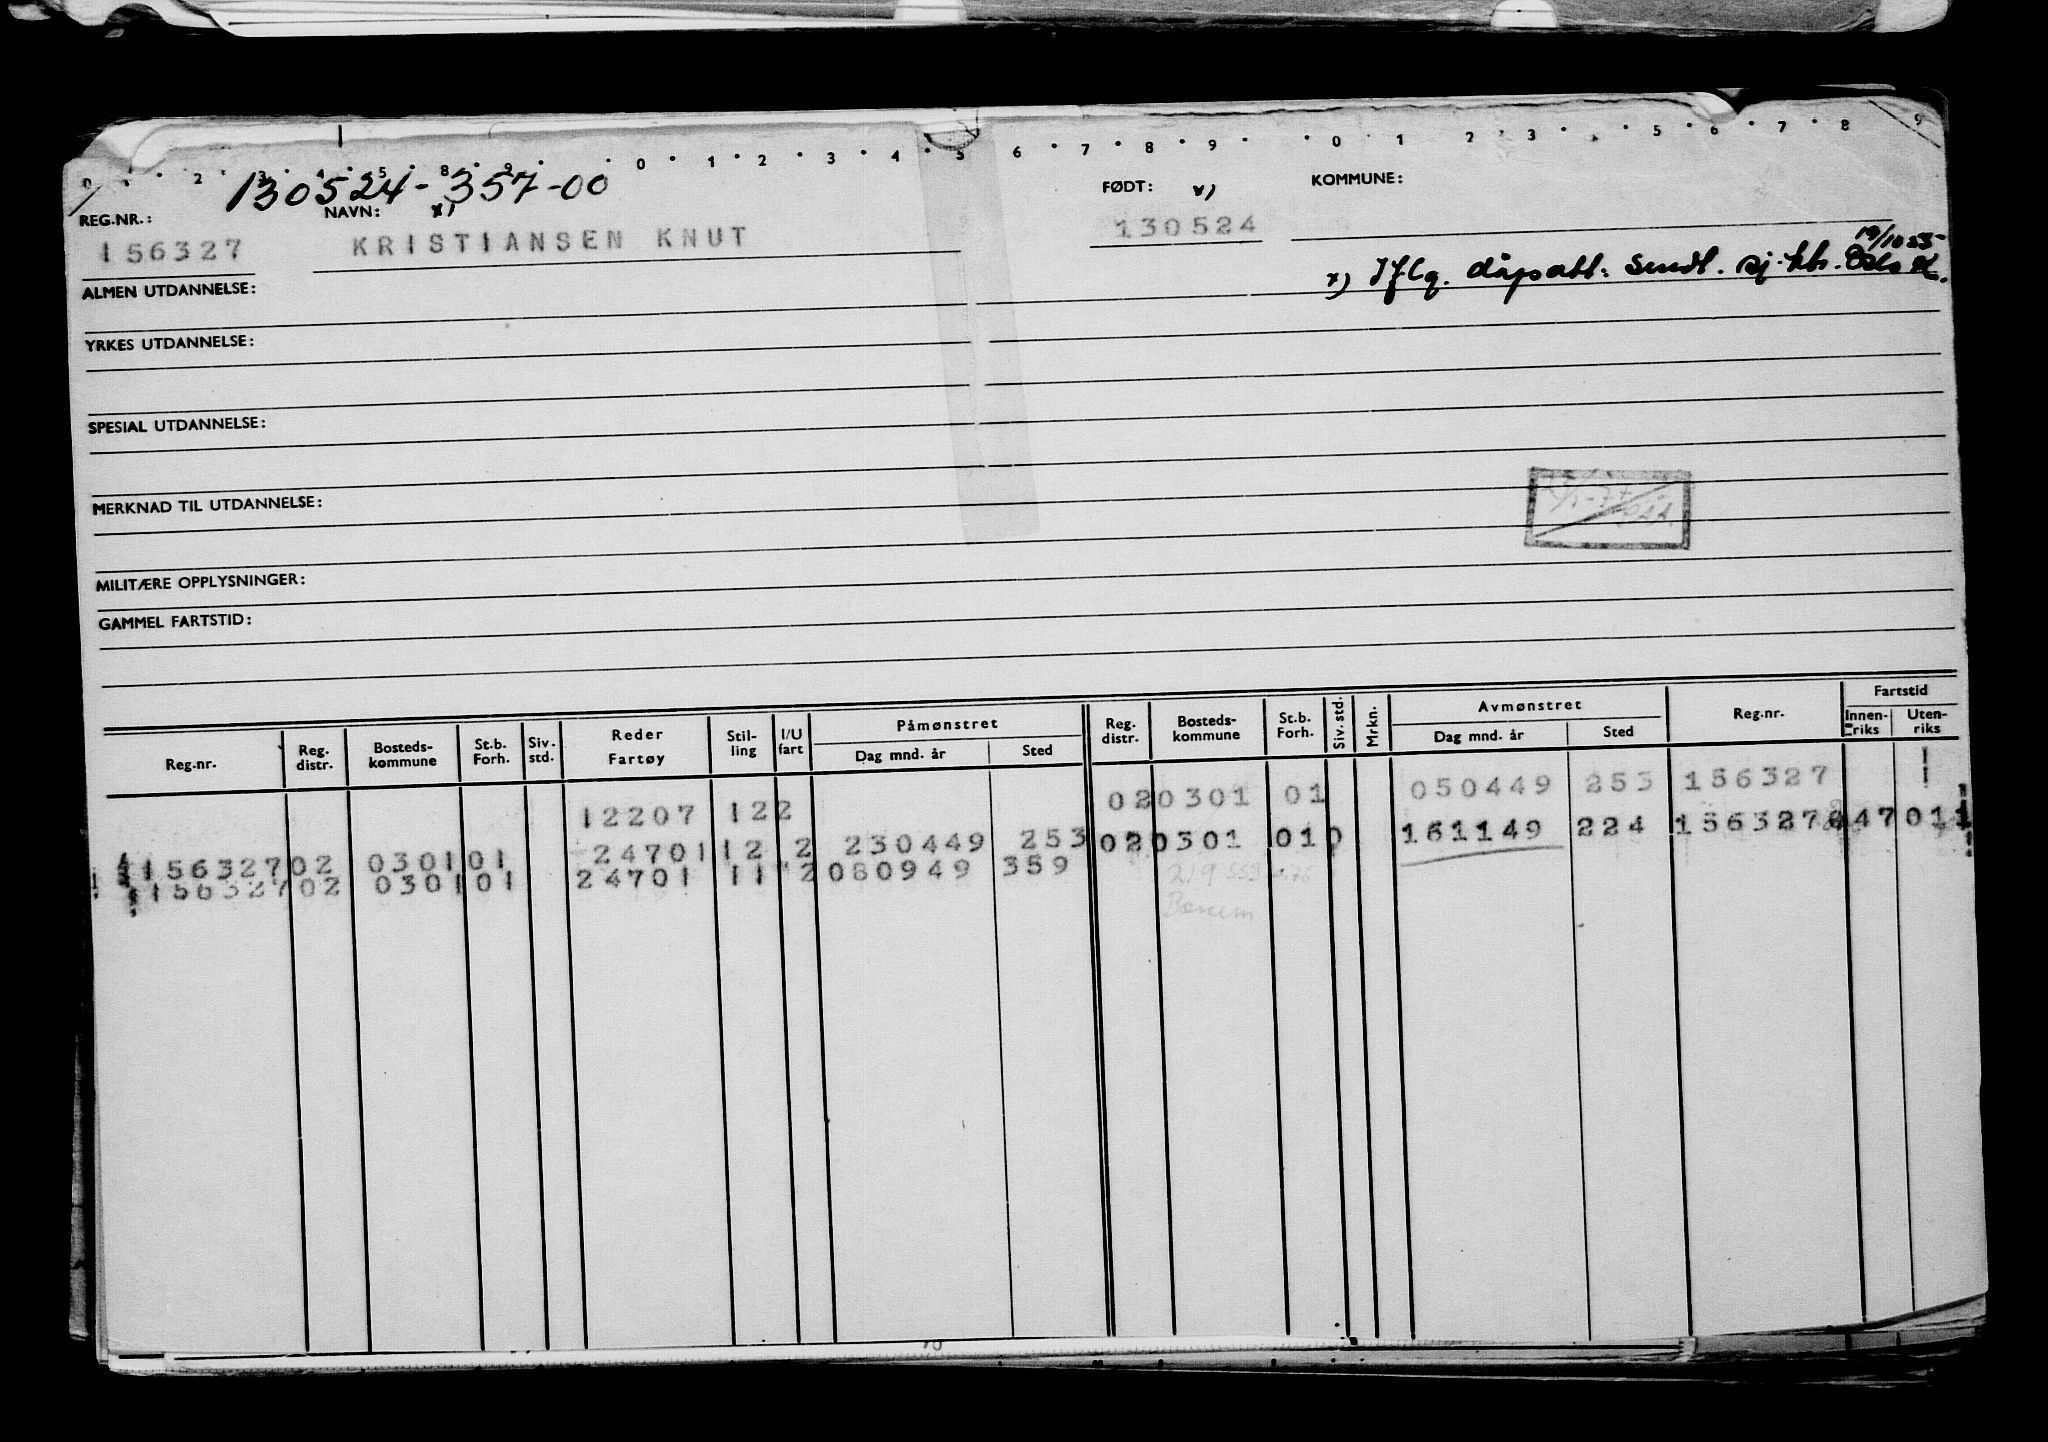 0 2 3 4 5 8 9 0 1 2 3 4 5 6 7 8 9 0 1 2 3 5 6 7 8 9
130524-357-00
REG.NR.: NAVN: x) FØDT: x) KOMMUNE:
156327 KRISTIANSEN KNUT 130524
19/10 55
x) Iflg. dåpsatt. sendt. sj. ktr. Oslo
ALMEN UTDANNELSE:
YRKES UTDANNELSE:
SPESIAL UTDANNELSE:
MERKNAD TIL UTDANNELSE:
MILITÆRE OPPLYSNINGER:
GAMMEL FARTSTID:
Reg.nr. Reg. distr. Bosteds-kommune St.b. Forh. Siv. std. Reder Fartøy Stil-ling I/U fart Påmønstret Dag mnd. år Sted Reg. distr. Bosteds-kommune St.b. Forh. Siv. std. Mrkn. Avmønstret Dag mnd. år Sted Reg.nr. Fartstid Innen-riks Uten-riks
12207 122 02 0301 01 050449 253 156327
156327 02 0301 01 24701 12 2 230449 253 02 0301 01 0 161149 224 156327 47 011
156327 02 0301 01 24701 11 2 080949 359
Bærum